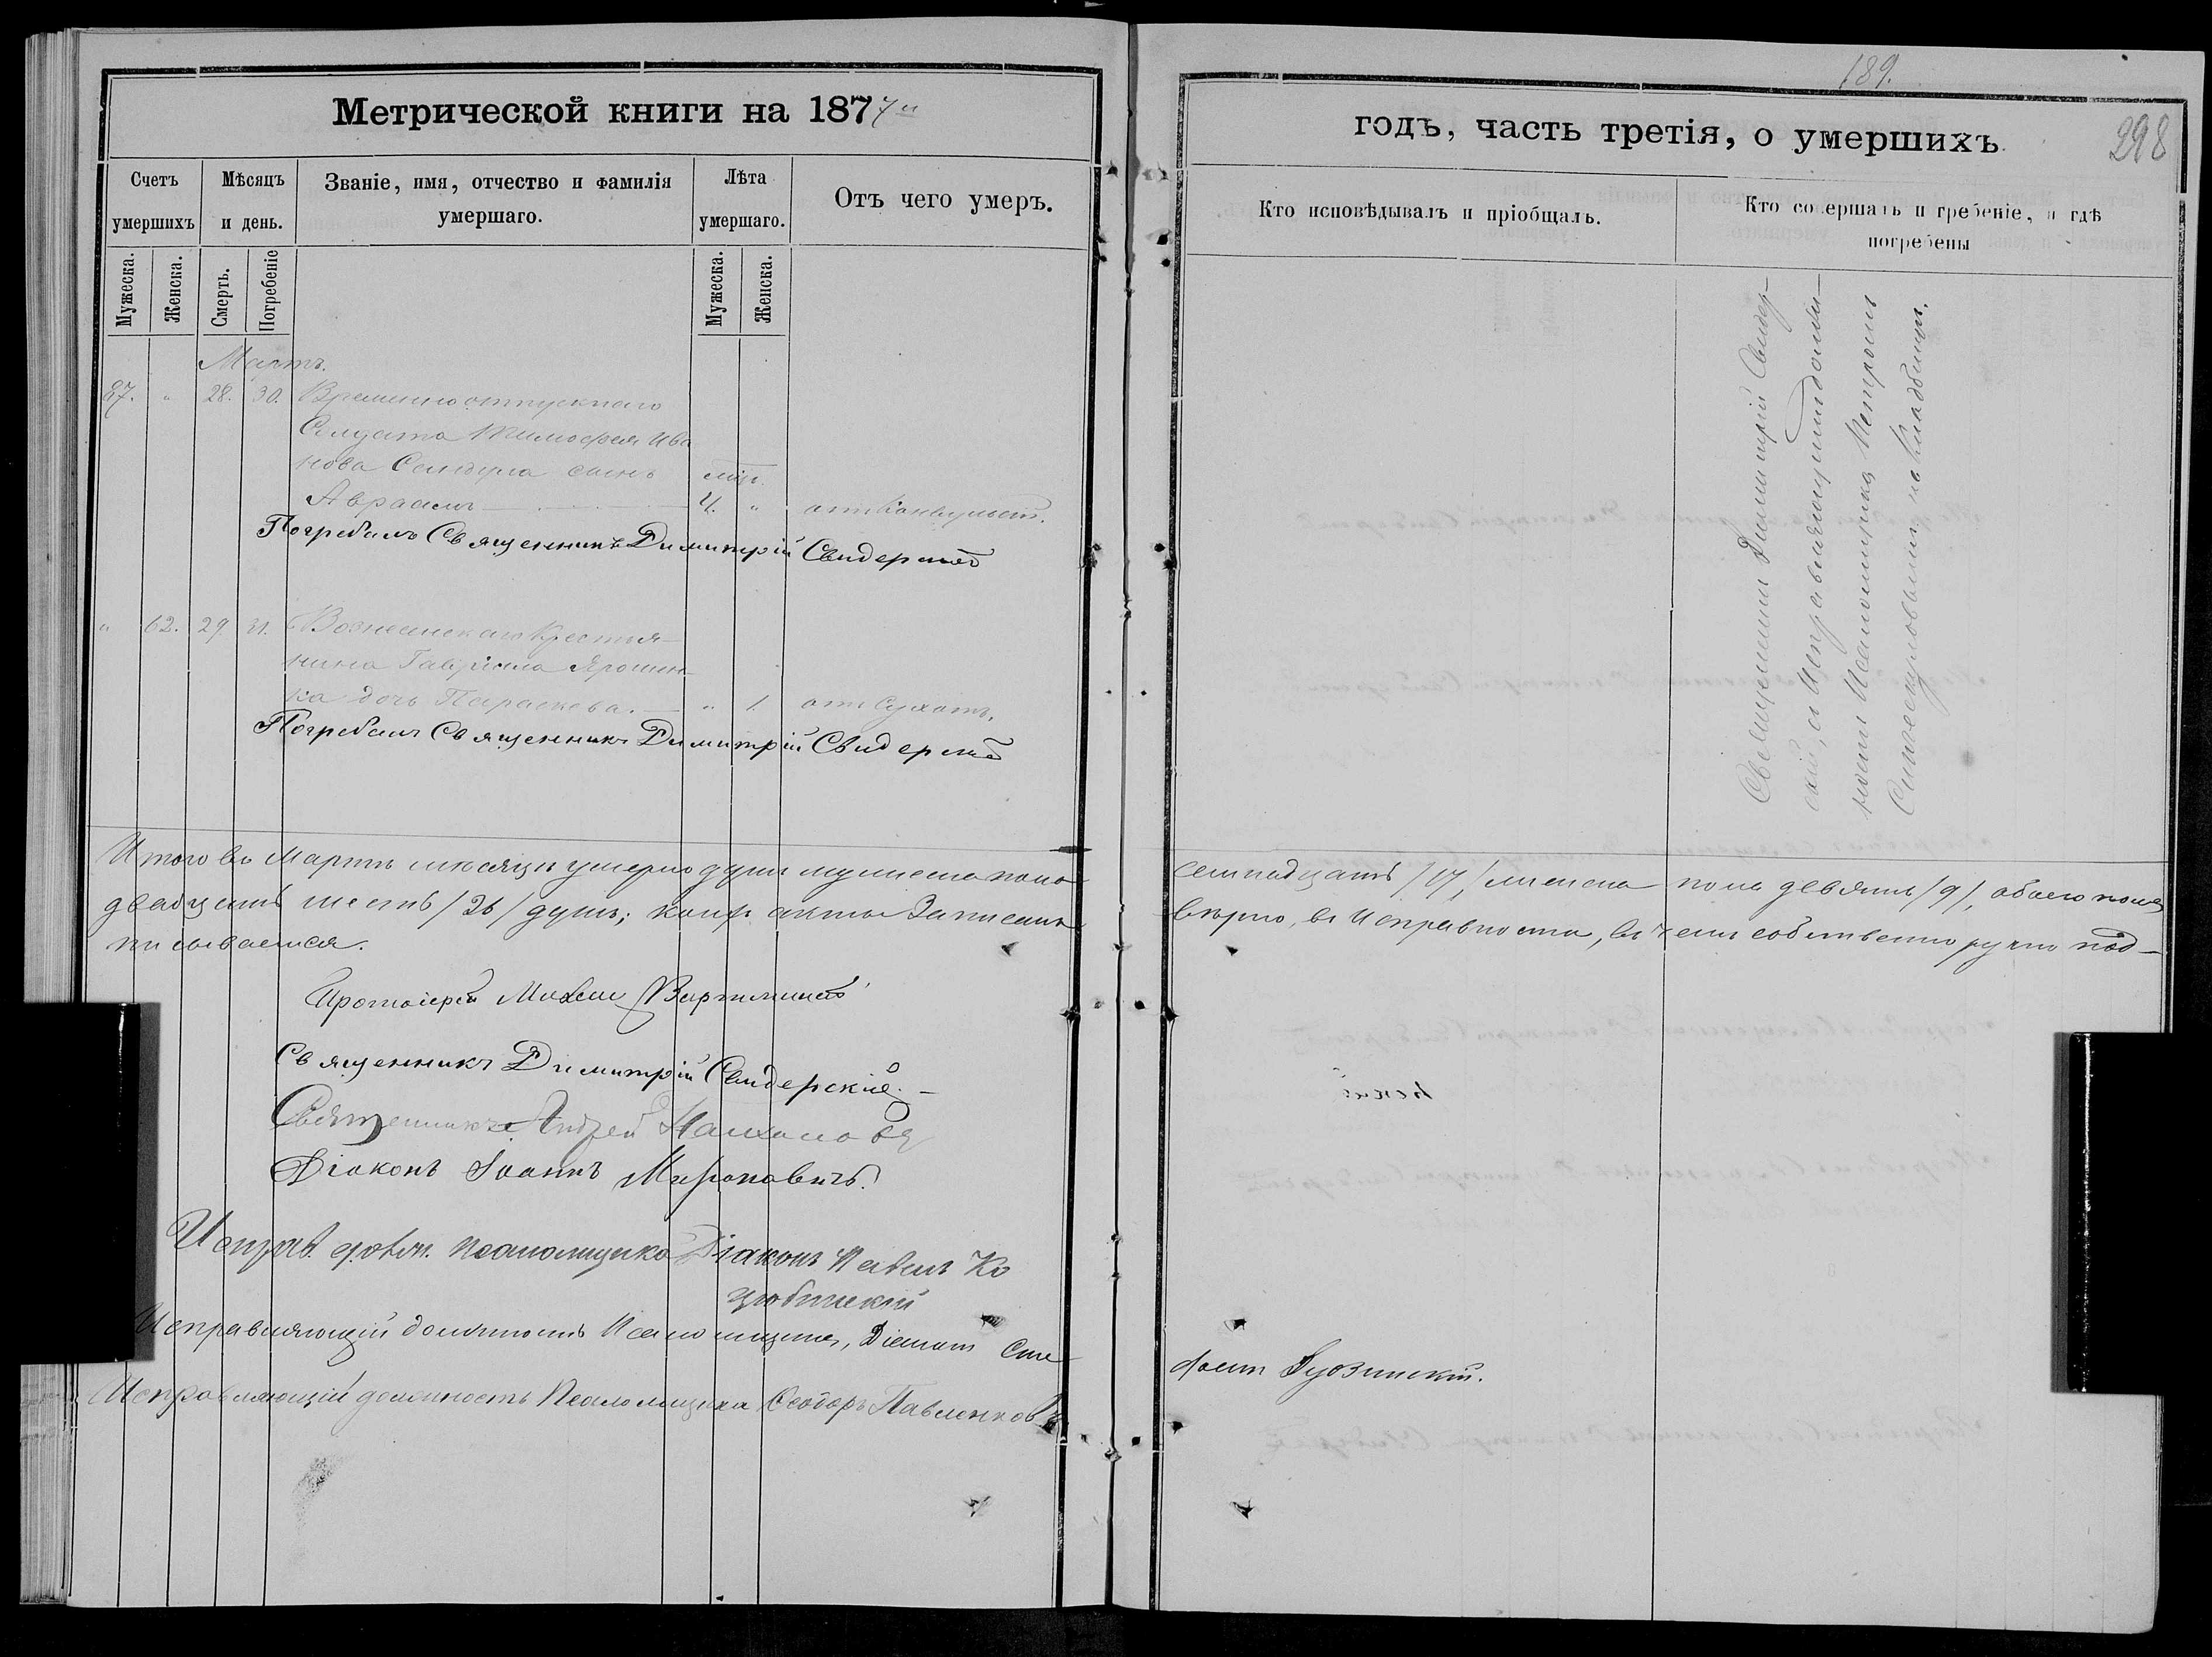 189.
298
Метрической книги на 1877й
годъ, часть третія, о умершихъ
Счетъ умершихъ
Мѣсяцъ и день.
Званіе, имя, отчество и фамилія умершаго.
Лѣта умершаго.
Отъ чего умеръ.
Кто исповѣдывалъ и пріобщалъ.
Кто совершалъ погребеніе, и гдѣ погребены
Мужеска.
Женска.
Смерть.
Погребеніе
Мужеска.
Женска.
Мартъ.
87. " 28. 30. Временноотпускнаго
Солдата Тимофея Ива
нова сынъ мѣс.
Авраамъ 4. " отъ Конвульсій.
Погребалъ Священникъ Димитрій Свидерскій
" 62. 29 31. Вознесенскаго Крестья-
нина Гавріила Ярошен-
ка дочь Параскева. " 1 отъ Сухотъ.
Погребалъ Священникъ Димитрій Свидерскій
Священникъ Димитрій Свидер-
скій, а Исправляющимъ долж-
ность Псаломщика Петромъ
на Кладбищѣ.
Итого въ Мартѣ мѣсяцѣ умерло душъ мужеска пола семнадцать /17/, женска пола девять /9/, обоего пола
двадцать шесть /26/ душъ; коихъ акты Записаны вѣрно, въ Исправности, въ чемъ собственноручно под-
писываемся.
Протоіерей
Священникъ Димитрій Свидерскій.-
Священникъ Андрей
Діаконъ Іоаннъ Мироновичъ.
Исправ. должн. псаломщика Діаконъ Павелъ Ко
цюбинскій
Исправляющій должность Псаломщика, Діаконъ Сте
фанъ
Исправляющій должность Псаломщика Ѳеодоръ Павленковъ